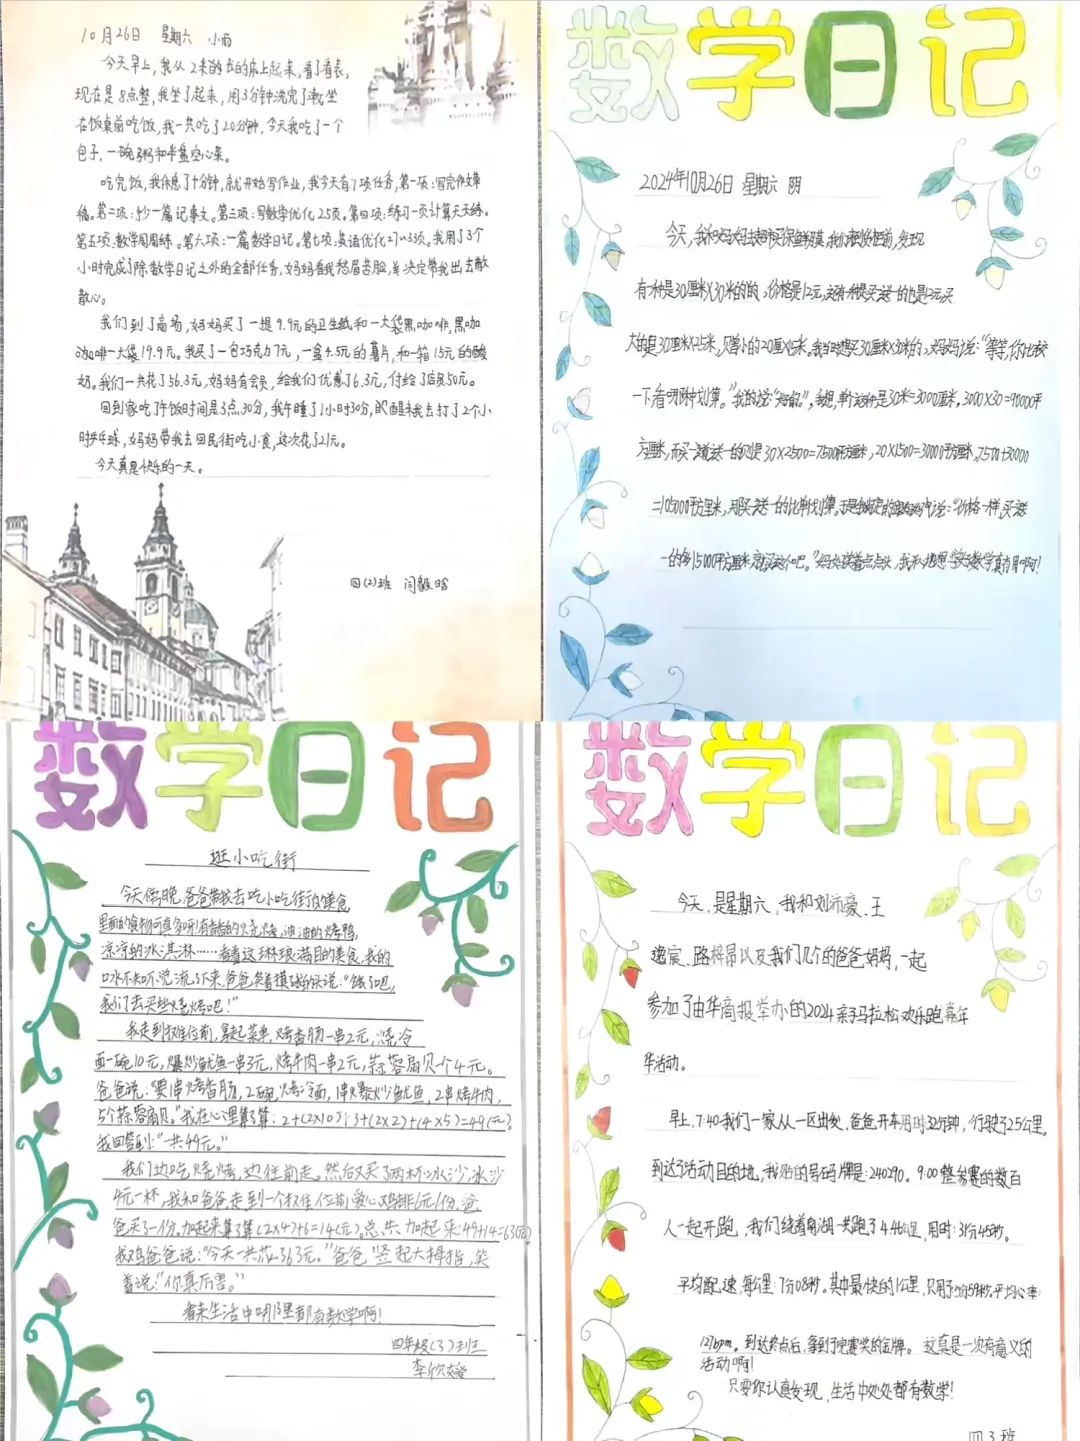 10月26日 星期六 小雨
今天早上,我从2米的长的床上起来,看了看表,
现在是8点整,我坐了起来,用3分钟洗完了漱,坐
在饭桌前吃饭,我一共吃了20分钟,今天我吃了一个
包子,一碗粥和半盘空心菜。
吃完饭,我休息了十分钟,就开始写作业,我今天有7项任务,第一项:写完作文草
稿。第二项:抄一篇记事文。第三项:写数学优化25页。第四项:练习一页计算天天练。
第五项:数学周周练。第六项:一篇数学日记。第七项:英语优化27~33页。我用了3个
小时完成了除数学日记之外的全部任务,妈妈看我愁眉苦脸,决定带我出去散
散心。
我们到了商场,妈妈买了一提9.9元的卫生纸和一大袋黑咖啡,黑咖
啡一大袋19.9元。我买了一包巧克力7元,一盒4.5元的薯片,和一箱15元的酸
奶。我们一共花了56.3元,妈妈有会员,给我们优惠了6.3元,付给了店员50元。
回到家吃了午饭时间是3点30分,我午睡了1小时30分,醒来我去打了2个小
时乒乓球,妈妈带我去回民街吃小食,这次花了21元。
今天真是快乐的一天。
四(2)班 闫毅晗
数学日记
2024年10月26日 星期六 阴
今天,我和妈妈去超市买保鲜膜,我们来到货柜前,发现
有一种是30厘米×30米的,价格是12元,还有一种是买一送一的也是12元,买
大的是30厘米×25米,赠小的20厘米×15米。我当时想买30厘米×30米的,妈妈说:“等等,你比较
一下,看哪种划算。”我说:“好的”,我想,单个这种是30米=3000厘米,3000×30=90000平
方厘米,而买一送一的则是30×2500=7500平方厘米,20×1500=30000平方厘米,7500+30000
=105000平方厘米,买一送一的比单个划算。于是我说:“价格一样,买一送
一的多15000平方厘米,就买这个吧。”妈妈笑着点点头,我想学好数学真有用啊!
数学日记
逛小吃街
今天傍晚,爸爸带我去吃小吃街的美食
里面的食物可真多呀!有香香的烧烤,油油的烤鸭,
凉凉的冰淇淋……看着这琳琅满目的美食,我的
口水不知不觉流了下来,爸爸笑着摸我的头说:“饿了吧,
我们去买些烧烤吧!”
我走到摊位前,拿起菜单,烤香肠一串2元,烤冷
面一碗10元,爆炒鱿鱼一串3元,烤牛肉一串2元,蒜蓉扇贝一个4元。
爸爸说:“要1串烤香肠,2碗烤冷面,1串爆炒鱿鱼,2串烤牛肉,
5个蒜蓉扇贝。”我在心里算了算:2+(2×10)+3+(2×2)+(4×5)=49(元),
我回答到:“一共49元。”
我们边吃烧烤,边往前走。然后又买了两杯冰沙,冰沙
4元一杯,我和爸爸走到一个摊位前,爱心鸡排6元1份,爸
爸买了一份,加起来算了算(2×4)+6=14(元),总共加起来:49+14=63(元)
我对爸爸说:“今天一共花了63元。”爸爸竖起大拇指,笑
着说:“你真厉害。”
看来生活中哪里都有数学啊!
四年级(3)班
李欣
数学日记
今天,是星期六,我和刘沛豪、王
宸、路梓昂以及我们几个的爸爸妈妈,一起
参加了由华商报举办的2024亲子马拉松欢乐跑嘉年
华活动。
早上7:40我们一家从一区出发,爸爸开车用时32分钟,行驶了25公里。
到达了活动目的地,我的号码牌是:240290。9:00整参赛的数百
人一起开跑,我们绕着湖一共跑了4.4公里,用时:31分45秒。
平均配速,每公里:7分08秒。其中最快的1公里,只用了5分59秒,平均心率:
127bpm。到达终点后,拿到了完赛奖的金牌。这真是一次有意义的
活动啊!
只要你认真发现,生活中处处都有数学!
四3班